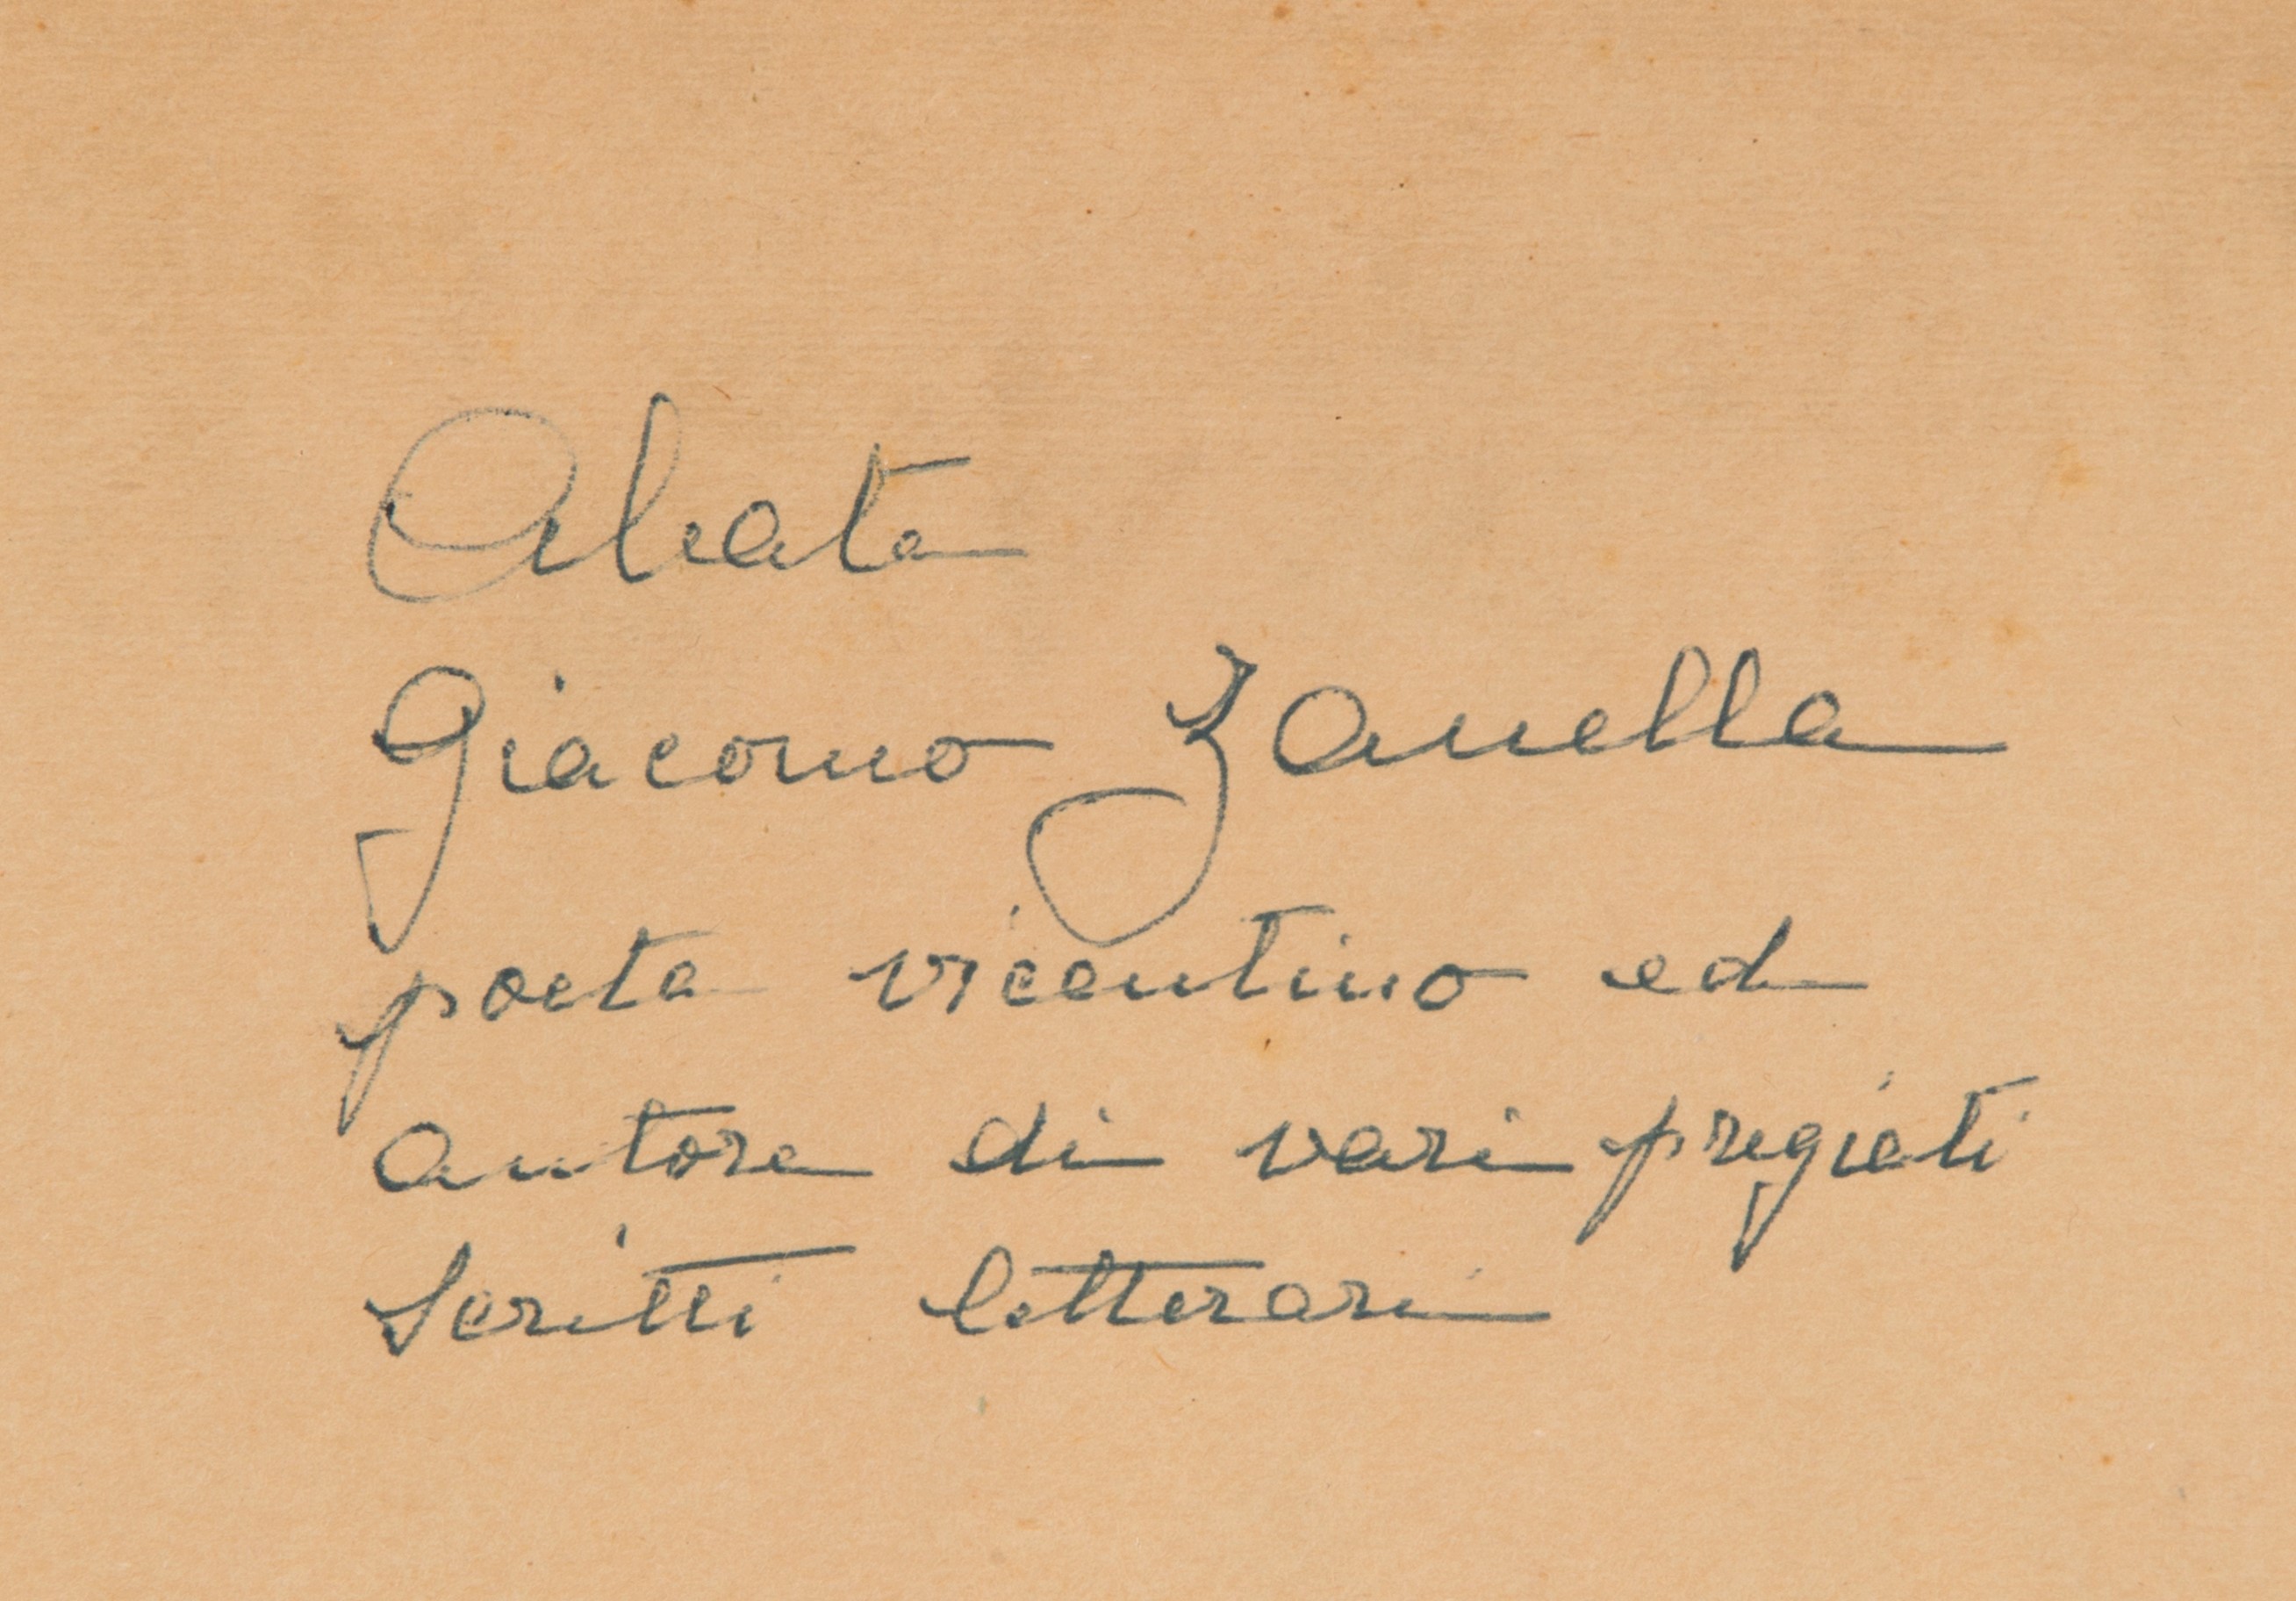 Abate
Giacomo Zanella
poeta vicentino ed
autore di vari pregiati
scritti letterari